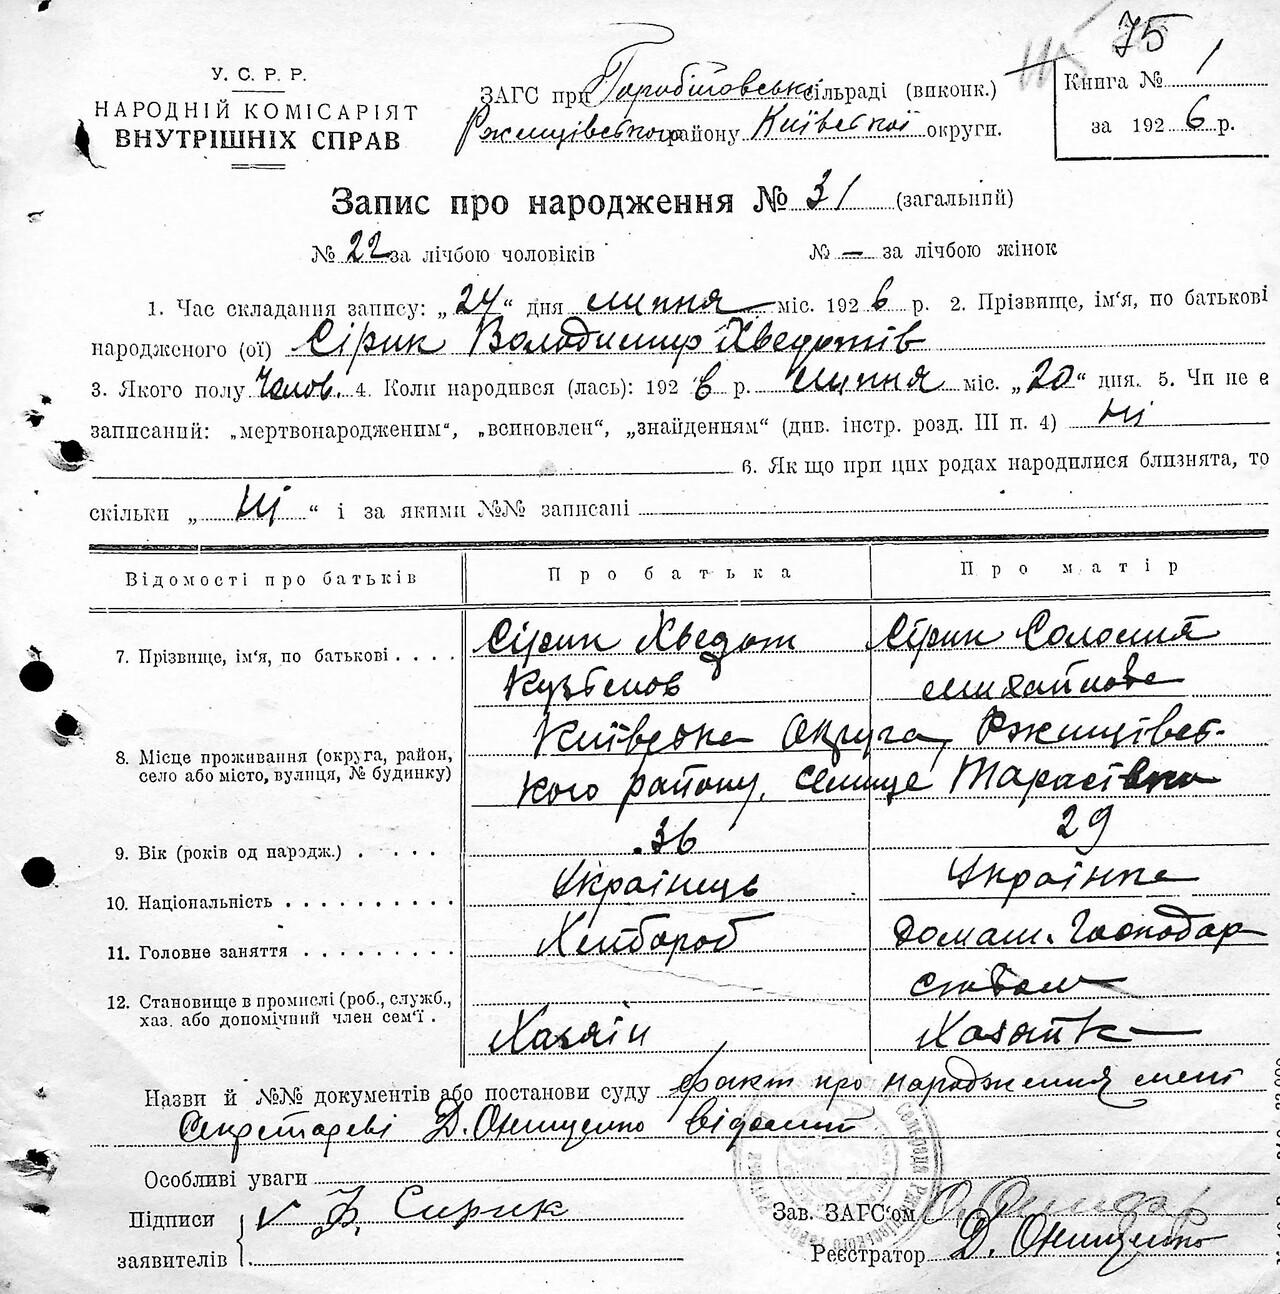 75
У. С. Р. Р.
НАРОДНІЙ КОМІСАРІЯТ
ВНУТРІШНІХ СПРАВ
ЗАГС при сільраді (виконк.)
Ржищівського району Київської округи.
Книга № 1
за 1926 р.
Запис про народження № 31 (загальний)
№ 22 за лічбою чоловіків № — за лічбою жінок
1. Час складання запису: „24“ дня липня міс. 1926 р. 2. Прізвище, ім‘я, по батькові
народженого (ої) Сірик Володимир Хведотів
3. Якого полу Чолов. 4. Коли народився (лась): 1926 р. липня міс. „20“ дня. 5. Чи не є
записаний: „мертвонародженим“, „всиновлен“, „знайденням“ (див. інстр. розд. III п. 4) Ні
6. Як що при цих родах народилися близнята, то
скільки „Ні“ і за якими №№ записані
Відомості про батьків Про батька Про матір
7. Прізвище, ім‘я, по батькові . . . . Сірик Хведот Сірик Соломія
Кузьмов Михайлова
8. Місце проживання (округа, район, село або місто, вулиця, № будинку) Київська Округа, Ржищівсь-
кого району, селище Тарасівка
9. Вік (років од народж.) . . . . . 36 29
10. Національність . . . . . . . . . . Українець Українка
11. Головне заняття . . . . . . . . . Хлібороб Домаш. Господар
ством
12. Становище в промислі (роб., служб.,
хаз. або допомічний член сем‘ї . Хазяїн Хазяйка
Назви й №№ документів або постанови суду факт про народження мені
Секретареві Д. Онищенко відомий
Особливі уваги
Підписи
заявителів
Ф. Сирик
Зав. ЗАГС‘ом
Реєстратор Д. Онищенко